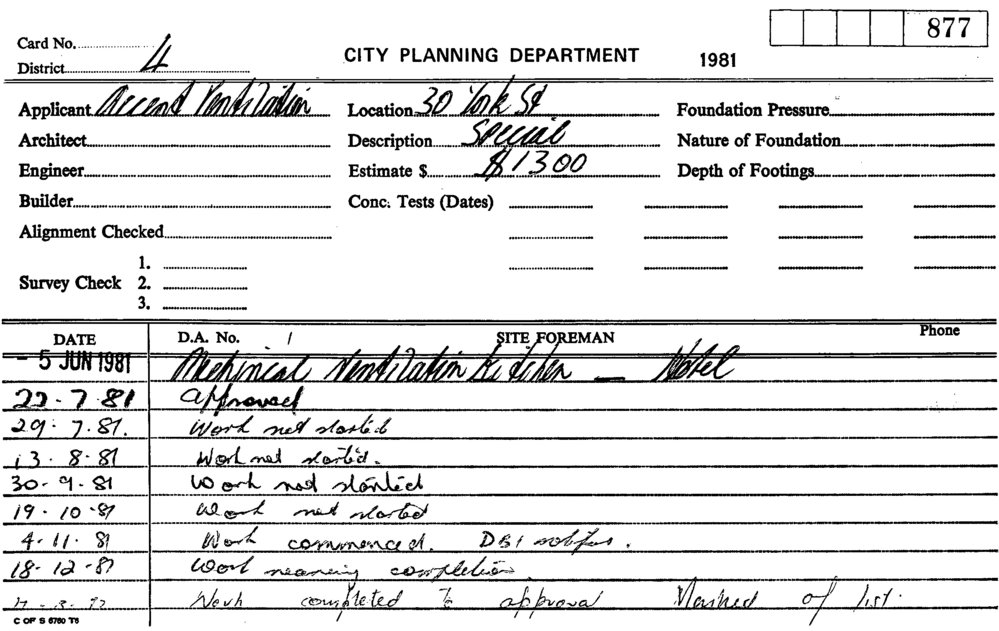 877
Card No.
District 4
CITY PLANNING DEPARTMENT 1981
Applicant Accent Ventilation Location 30 York St Foundation Pressure
Architect Description Special Nature of Foundation
Engineer Estimate $ $1300 Depth of Footings
Builder Conc. Tests (Dates)
Alignment Checked
1.
Survey Check 2.
3.
DATE D.A. No. / SITE FOREMAN Phone
- 5 JUN 1981 Mechinical Ventilation Kitchen — Hotel
22.7.81 approved
29.7.81. Work not started
13.8.81 Work not started.
30.9.81 Work not started
19.10.81 Work not started
4.11.81 Work commenced. DBI
18.12.81 Work nearing completion
Work completed to approval Marked of list.
C OF S 6760 T6